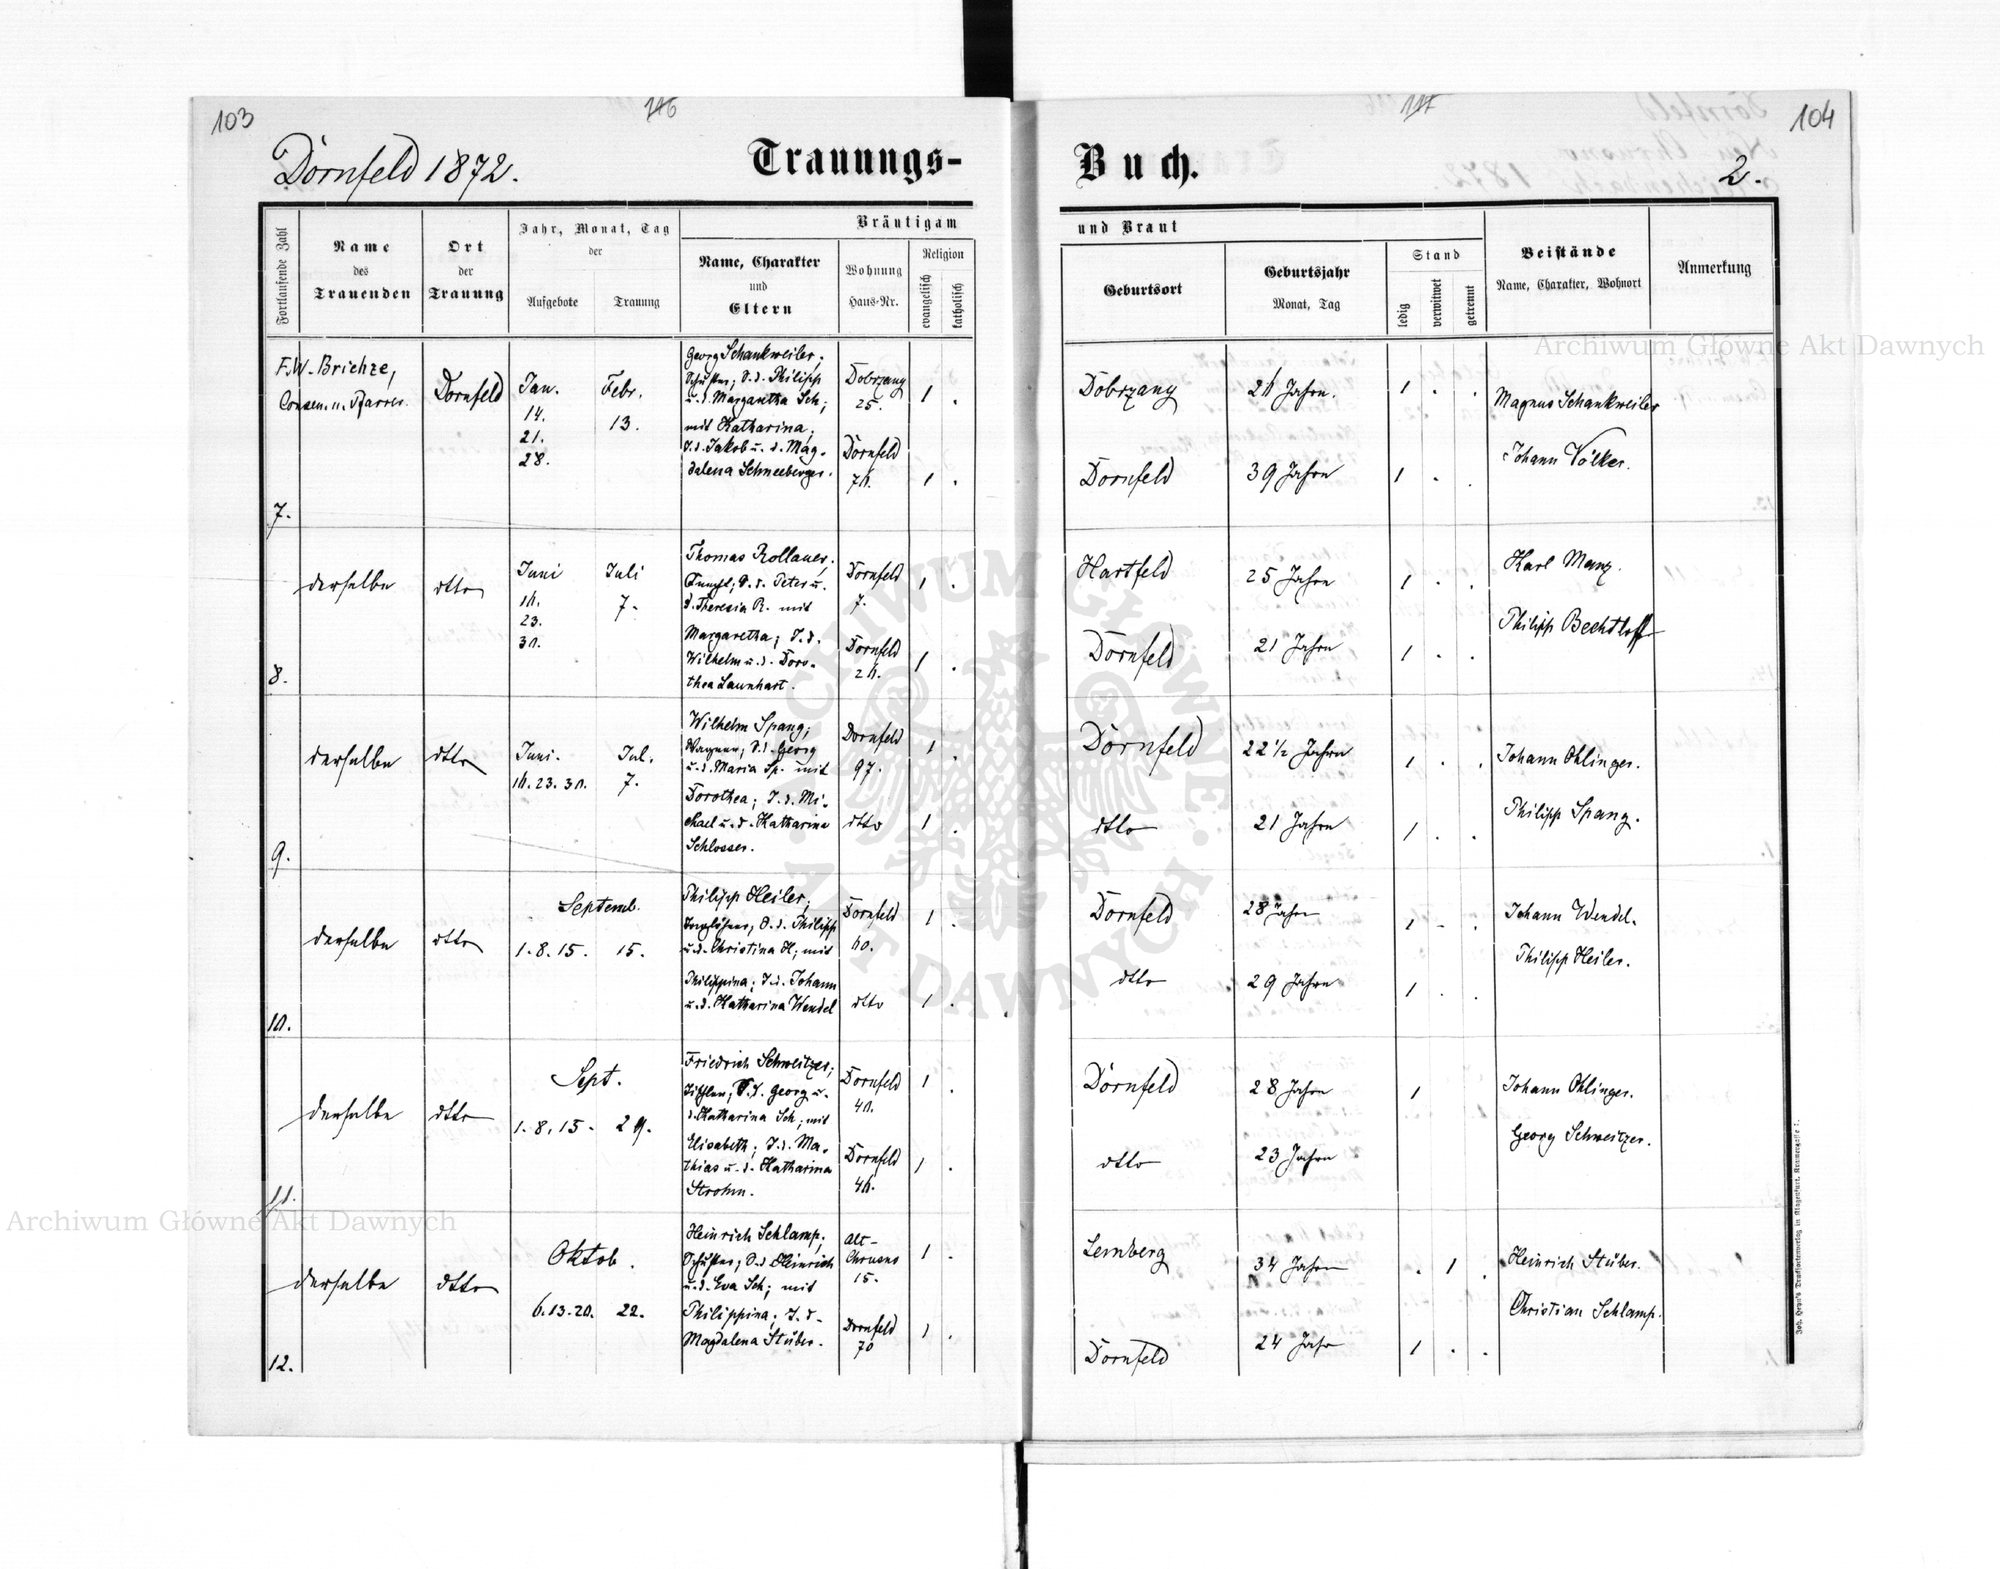 103
116
Dornfeld 1872.
Trauungs-
Fortlaufende Zahl
Name
des
Trauenden
Ort
der
Trauung
Jahr, Monat, Tag
der
Aufgebote
Trauung
Bräutigam
Name, Charakter
und
Eltern
Wohnung
Haus-Nr.
Religion
evangelisch
katholisch
7.
F.W. Brichze,
Consen. u. Pfarrer.
Dornfeld
Jan.
14.
21.
28.
Febr.
13.
Georg Schankweiler,
Schuster; S.d. Philipp
u.d. Margaretha Sch;
mit Katharina;
T.d. Jakob u. d. Mag-
dalena Schneeberger.
Dobrzany
25.
Dornfeld
1 .
1 .
8.
derselbe
dtto
Juni
16.
23.
30.
Juli
7.
Thomas Rollauer,
S.d. Peter u.
d. Theresia R. mit
Margaretha; T.d.
Wilhelm u.d. Doro-
thea Launhart.
Dornfeld
7.
Dornfeld
1 .
1 .
9.
derselbe
dtto
Juni.
16. 23. 30.
Jul.
7.
Wilhelm Spang;
Wagner; S.d. Georg
u.d. Maria Sp. mit
Dorothea; T.d. Mi-
chael u.d. Katharina
Schlosser.
Dornfeld
97.
dtto
1 .
1 .
10.
derselbe
dtto
Septemb.
1. 8. 15. 15.
Philipp Heiler;
Taglöhner, S.d. Philipp
u.d. Christina H; mit
Philippina; T.d. Johann
u.d. Katharina Wendel
Dornfeld
dtto
1 .
1 .
11.
derselbe
dtto
Sept.
1. 8. 15. 29.
Friedrich Schweitzer;
Tischler; S.d. Georg u.
d. Katharina Sch; mit
Elisabeth; T.d. Ma-
thias u.d. Katharina
Strohm.
Dornfeld
Dornfeld
1 .
1 .
12.
derselbe
dtto
Oktob.
6. 13. 20. 22.
Heinrich Schlamp;
Schuster; S.d. Heinrich
u.d. Eva Sch; mit
Philippina; T.d.
Magdalena Stüber.
Alt-
Chrusno
15.
Dornfeld
70
1 .
1 .
117
104
Buch.
2.
und Braut
Geburtsort
Geburtsjahr
Monat, Tag
Stand
ledig
verwitwet
getrennt
Beistände
Name, Charakter, Wohnort
Anmerkung
Dobrzany
Jahre.
1 . .
Magnus Schankweiler
Dornfeld
39 Jahre
1 . .
Johann Völker.
Hartfeld
25 Jahre
1 . .
Karl Manz.
Dornfeld
21 Jahre
1 . .
Philipp Bechtloff
Dornfeld
22 1/2 Jahre
1 . .
Johann Ohlinger.
dtto
21 Jahre
1 . .
Philipp Spang.
Dornfeld
28 Jahre
1 . .
Johann Wendel.
dtto
29 Jahre
1 . .
Philipp Heiler.
Dornfeld
28 Jahre
1
Johann Ohlinger.
dtto
23 Jahre
Georg Schweitzer.
Lemberg
34 Jahre
. 1 .
Heinrich Stüber.
Dornfeld
24 Jahr
1 . .
Christian Schlamp.
Joh. Heyn's Drucksortenverlag in Klagenfurt, Kramergasse 7.
Archiwum Główne Akt Dawnych
Archiwum Główne Akt Dawnych
ARCHIWUM GŁÓWNE · AKT DAWNYCH ·